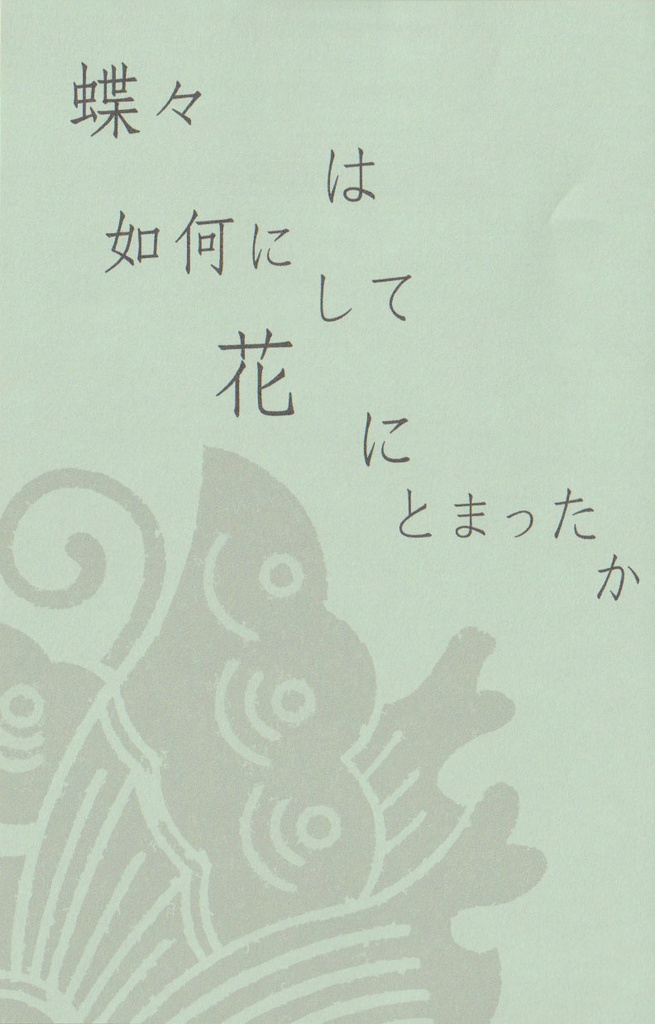 蝶々
は
如何に
して
花
に
とまった
か